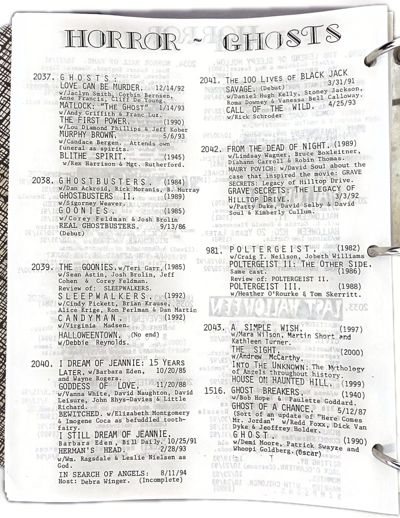 HORROR ~ GHOSTS
2037. GHOSTS:
LOVE CAN BE MURDER. 12/14/92
w/Jaclyn Smith, Corbin Bernsen,
Anne Francis, Cliff De Young.
MATLOCK: "THE GHOST" 1/14/93
w/Andy Griffith & Franc Luz.
THE FIRST POWER. (1990)
w/Lou Diamond Phillips & Jeff Kober
MURPHY BROWN. 5/6/93
w/Candace Bergen. Attends own
funeral as spirits.
BLITHE SPIRIT. (1945)
w/Rex Harrison & Mgt. Rutherford.
2038. GHOSTBUSTERS. (1984)
w/Dan Ackroid, Rick Moranis, B. Murray
GHOSTBUSTERS II. (1989)
w/Sigorney Weaver.
GOONIES. (1985)
w/Corey Feldman & Josh Brolin
REAL GHOSTBUSTERS. 9/13/86
(Debut)
2039. THE GOONIES. w/Teri Garr, (1985)
w/Sean Astin, Josh Brolin, Jeff
Cohen & Corey Feldman.
Review of: SLEEPWALKERS.
SLEEPWALKERS. (1992)
w/Cindy Pickett, Brian Krause,
Alice Krige, Ron Perlman & Dan Martin
CANDYMAN. (1992)
w/Virginia Madsen.
HALLOWEENTOWN. (No end)
w/Debbie Reynolds.
2040. I DREAM OF JEANNIE: 15 YEARS
LATER. w/Barbara Eden, 10/20/85
and Wayne Rogers.
GODDESS OF LOVE. 11/20/88
w/Vanna White, David Naughton, David
Leisure, John Rhys-Davies & Little
Richard.
BEWITCHED. w/Elizabeth Montgomery
& Imogene Coca as befuddled tooth-
fairy.
I STILL DREAM OF JEANNIE.
Barbara Eden, Bill Daily. 10/25/91
HERMAN'S HEAD. 2/28/93
w/Wm. Ragsdale & Leslie Nielsen as
God.
IN SEARCH OF ANGELS: 8/11/94
Host: Debra Winger. (Incomplete)
2041. The 100 Lives of BLACK JACK
SAVAGE. (Debut) 3/31/91
w/Daniel Hugh Kelly, Stoney Jackson,
Roma Downey & Vanessa Bell Calloway.
CALL OF THE WILD. 4/25/93
w/Rick Schroder
2042. FROM THE DEAD OF NIGHT. (1989)
w/Lindsay Wagner, Bruce Boxleitner,
Diahann Carroll & Robin Thomas.
MAURY POVICH: w/David Soul about the
case that inspired the movie: GRAVE
SECRETS: Legacy of Hilltop Drive.
GRAVE SECRETS: THE LEGACY OF
HILLTOP DRIVE. 3/3/92
w/Patty Duke, David Selby & David
Soul & Kimberly Cullum.
981. POLTERGEIST. (1982)
w/Craig T. Neilson, Jobeth Williams
POLTERGEIST II: THE OTHER SIDE.
Same cast. (1986)
Review of: POLTERGEIST II.
POLTERGEIST III. (1988)
w/Heather O'Rourke & Tom Skerritt.
2043. A SIMPLE WISH. (1997)
w/Mara Wilson, Martin Short and
Kathleen Turner.
THE SIGHT. (2000)
w/Andrew McCarthy.
INTO THE UNKNOWN: The Mythology
of Angels throughout history.
HOUSE ON HAUNTED HILL. (1999)
1516. GHOST BREAKERS. (1940)
w/Bob Hope & Paulette Goddard.
GHOST OF A CHANCE. 5/12/87
(Sort of an update of "Here Comes
Mr. Jordan" w/Redd Foxx, Dick Van
Dyke & Jeoffrey Holder.
GHOST. (1990)
w/Demi Moore, Patrick Swayze and
Whoopi Goldberg. (Oscar)